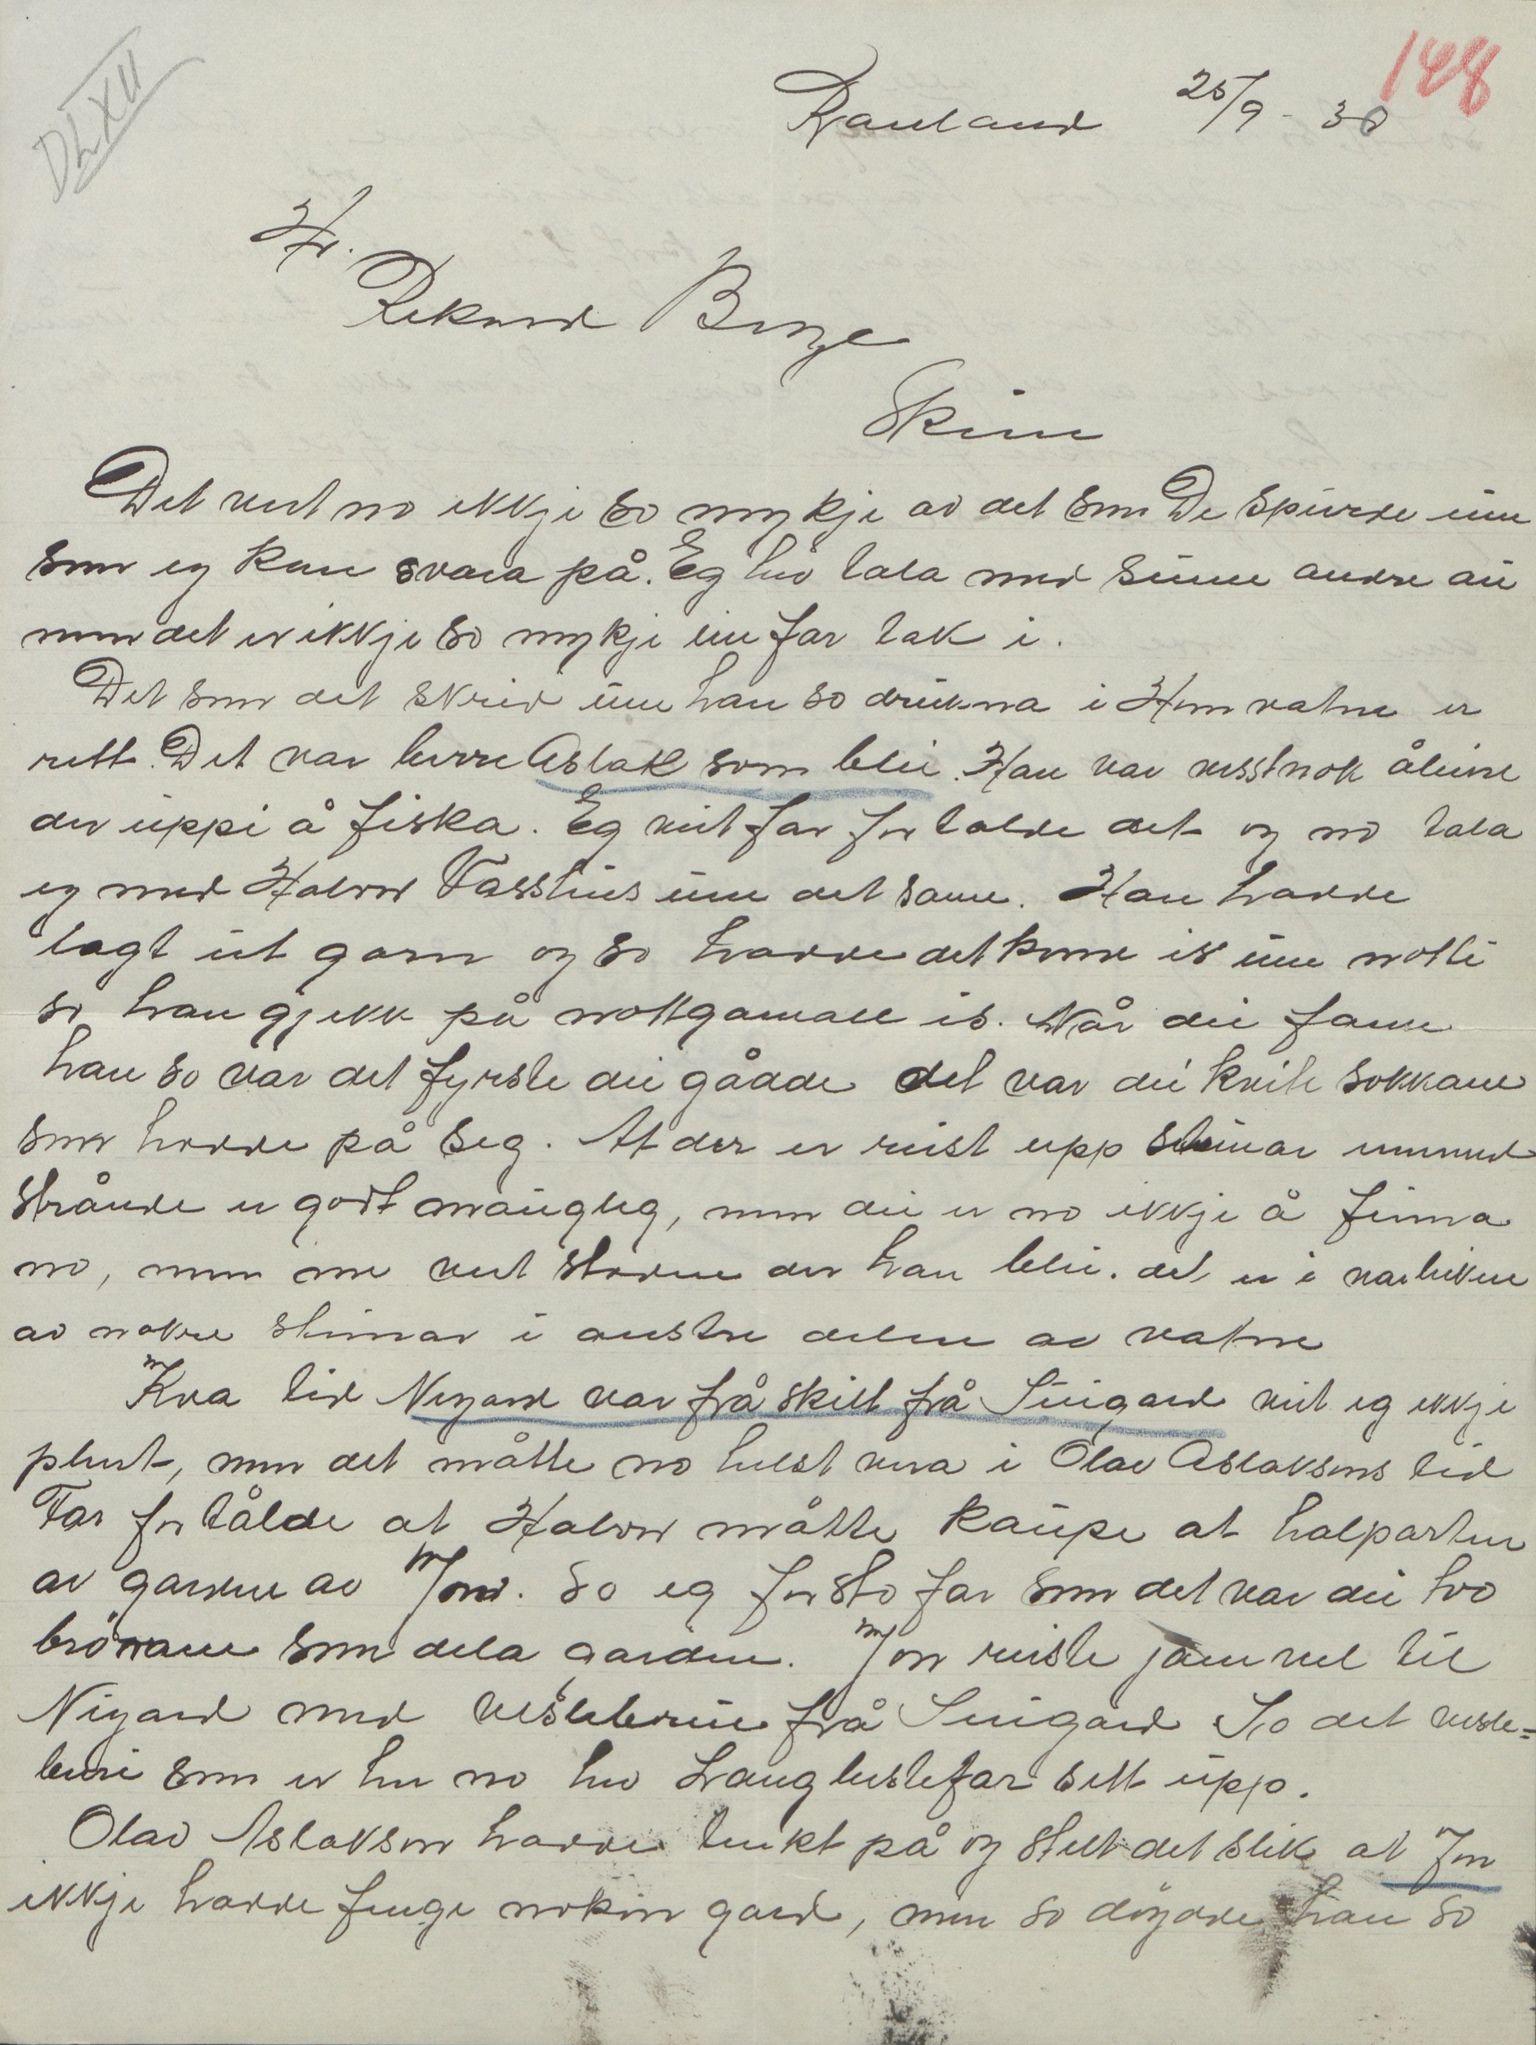 DLXII
148
Rauland 25/9 - 38
Hr.
Rikard Berge
Skien
Det vert no ikkje so mykje av det som De spurde um
som eg kan svara på. Eg hev tala med sume andre au
men det er ikkje so mykje ein far tak i.
Det som det skreiv um han so drukna i Hem vatne er
rett. Det var berre Aslak som blei. Han var visst nok åleine
der uppi å fiska. Eg veit far fortalde det og no tala
eg med Halvor Vasslius um det same. Han hadde
lagt ut garn og so hadde det kome is um notti
so han gjekk på nottgamall is. Når dei fann
han so var det fyrste dei gådde det var dei kvite sokkane
som hadde på seg. At der er reist upp steinar umned
strånde er godt mauigleg, men dei er no ikkje å finna
no, men me veit staden der han blei. det er i
av nokre steinar i austre delen av vatne
Kva tid Nigard var frå skilt frå Suigard veit eg ikkje
plent, men det måtte no helst vera i Olav Aslaksons tid
Far fortålde at Halvor måtte kaupe at halparten
av garden av Jon. So eg forsto far som det var dei tvo
brørane som dela garden. Jon reiste jamvel til
Nigard med veslebuie frå Suigard So det vesle=
buri som er her no hev Haug bestefar sett upp.
Olav Aslakson hadde tenkt på og stelt det slik at Jon
ikkje hadde fenge nokon gard, men so døydde han so